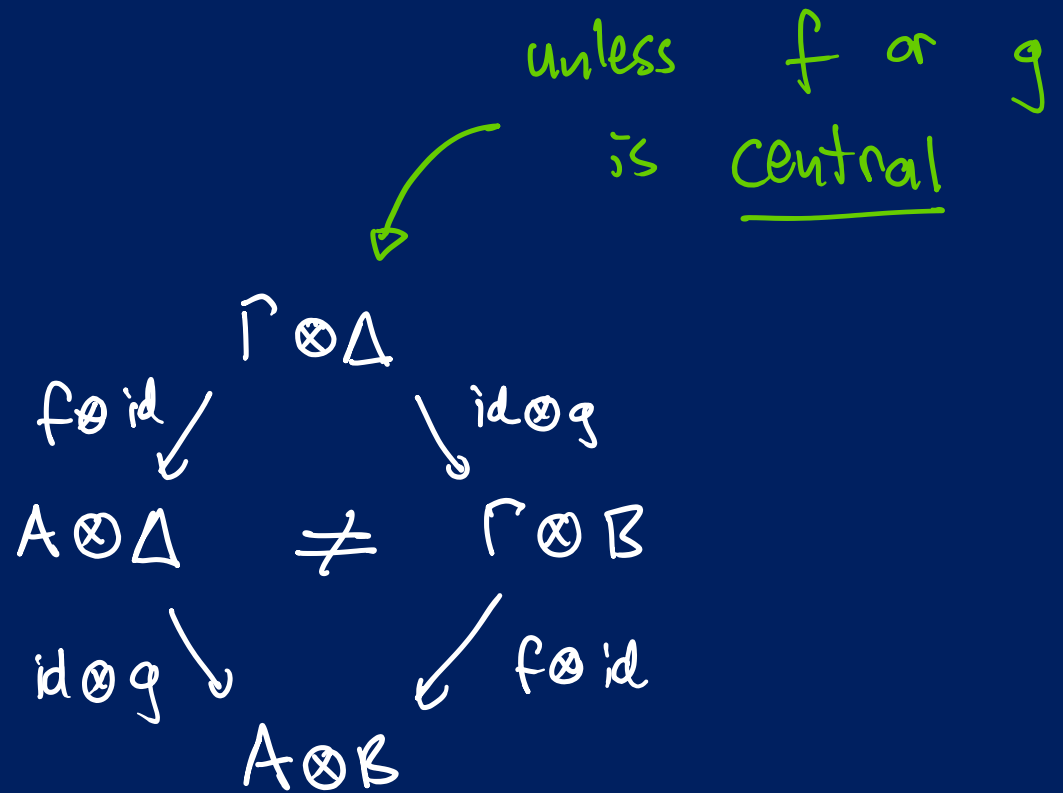 unless f or g
is central
Γ⊗Δ
f⊗id id⊗g
A⊗Δ ≠ Γ⊗B
id⊗g f⊗id
A⊗B